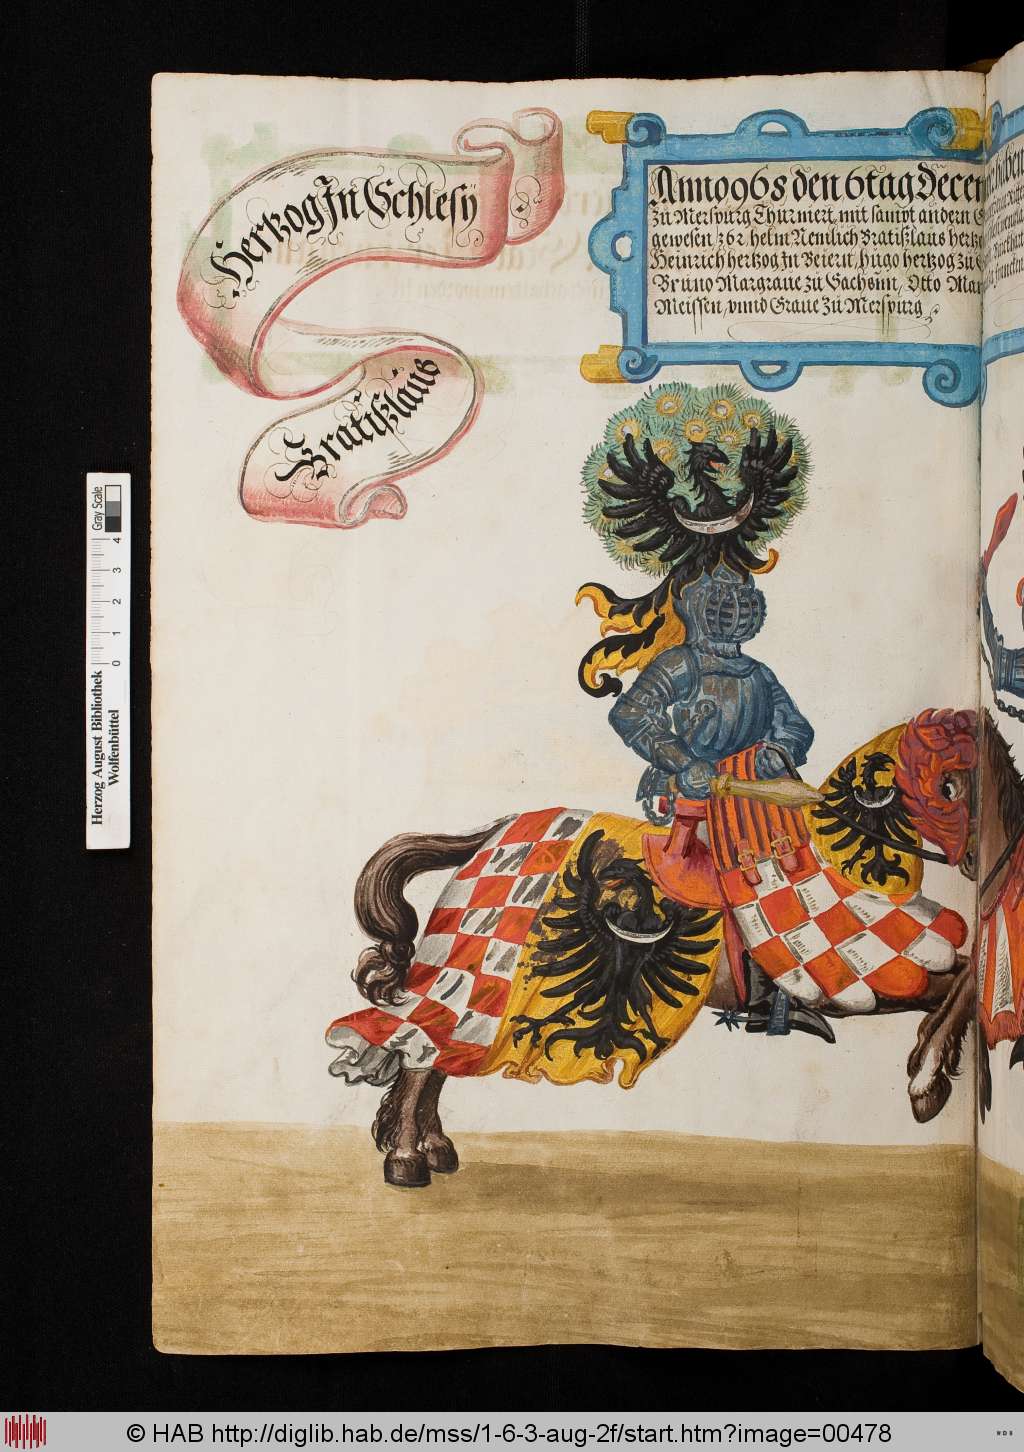 Hertzog In Schlesy
Bratißlaus
Anno 968 den 6 tag Decem
zu Merspurg Thurniert, mit sampt andern
gewesen, 362 helm Nemlich Bratißlaus hertzo
Heinrich hertzog In Beiern, hugo hertzog zu
Bruno Margraue zu Sachsen, Otto Mar
Meissen, vnnd Graue zu Merspurg
Herzog August Bibliothek
Wolfenbüttel
0 1 2 3 4
Gray Scale
© HAB http://diglib.hab.de/mss/1-6-3-aug-2f/start.htm?image=00478